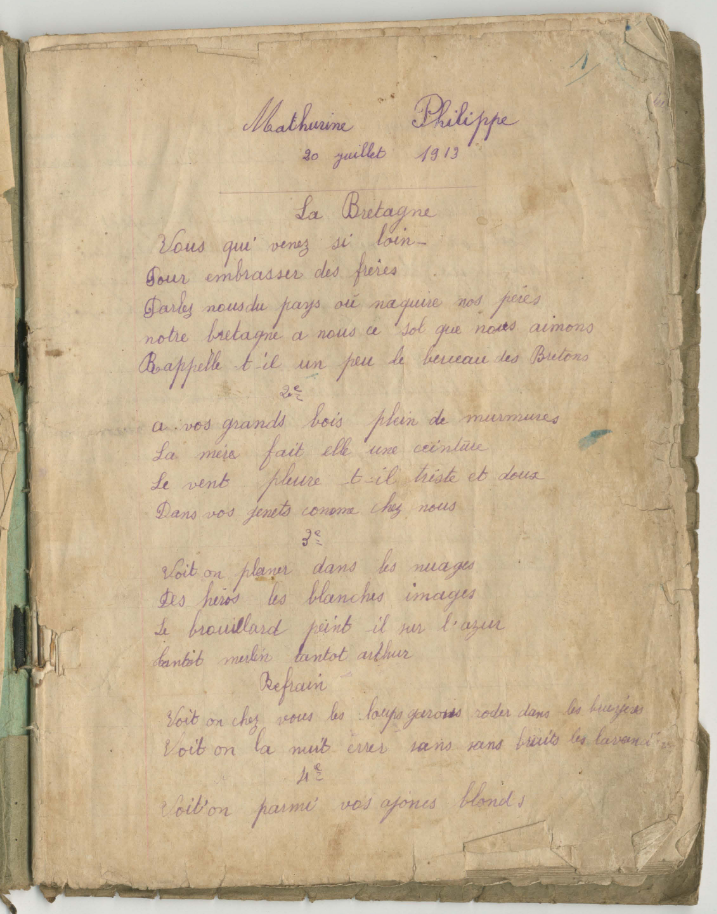 1
Mathurine Philippe
20 juillet 1913
La Bretagne
Vous qui venez si loin
Pour embrasser des frères
Parlez nous du pays où naquire nos pères
notre bretagne a nous ce sol que nous aimons
Rappelle t-il un peu le berceau des Bretons
2e
a vos grands bois plein de murmures
La mère fait elle une ceinture
Le vent pleure t-il triste et doux
Dans vos jenets comme chez nous
3e
Voit on planer dans les nuages
Des héros les blanches images
Le brouillard peint il sur l'azur
tantôt merlin tantot arthur
Refrain
Voit on chez vous les loups garous roder dans les bruyères
Voit on la nuit errer sans sans bruits les
4e
Voit'on parmi vos ajoncs blonds